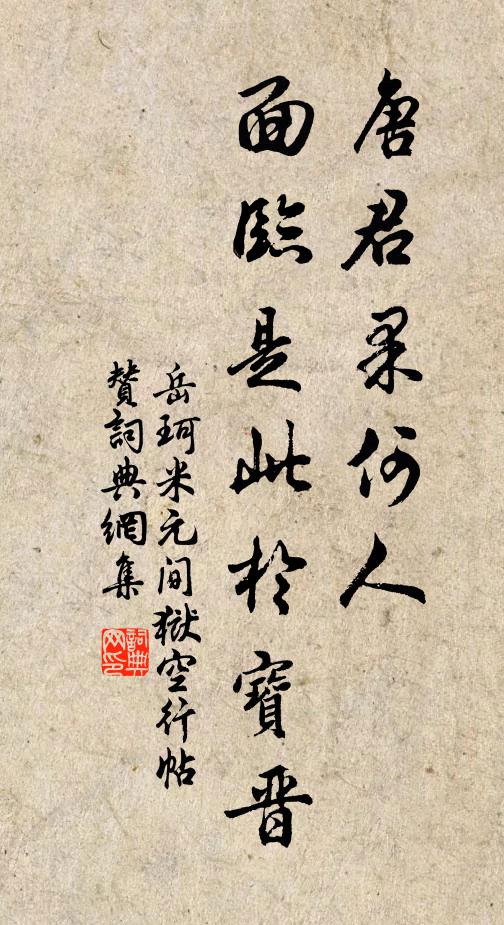 唐君果何人
面臨是此於寶晋
岳珂米元间獄空行帖
贊詞典網集
詞典网印